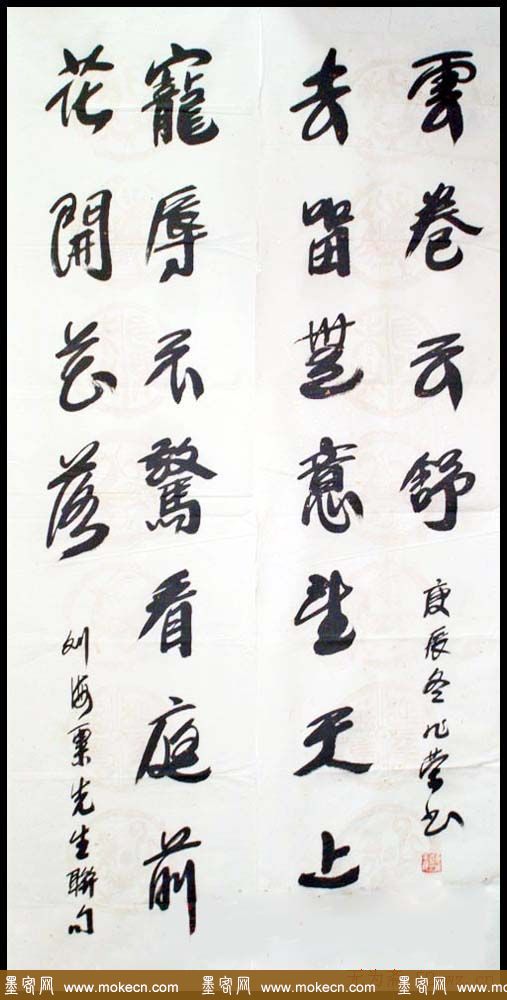 寵辱不驚看庭前
花開花落
刘海粟先生聯句
去留無意望天上
雲卷云舒
庚辰冬兆书
墨客网 www.mokecn.com 墨客网 www.mokecn.com 墨客网 www.mokecn.com